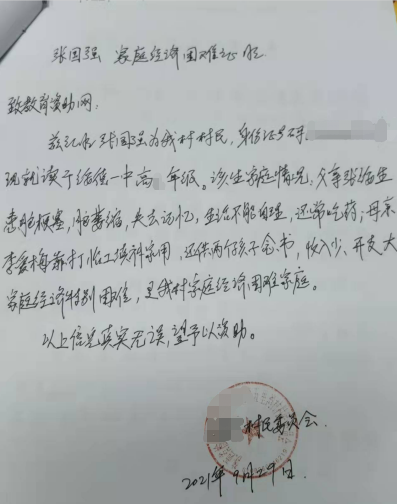 张国强 家庭经济困难证明
致教育资助网：
兹证明张国强为我村村民，身份证号码
现就读于绐佳一中高 年级。该生家庭情况：父亲张
患脑梗塞，脑萎缩，失去记忆，生活不能自理，还常吃药；母亲
李爱梅靠打临工维补家用，还供两个孩子念书，收入少、开支大
家庭经济特别困难，是我村家庭经济困难家庭。
以上信息真实无误，望予以资助。
村民委员会
2021年9月29日